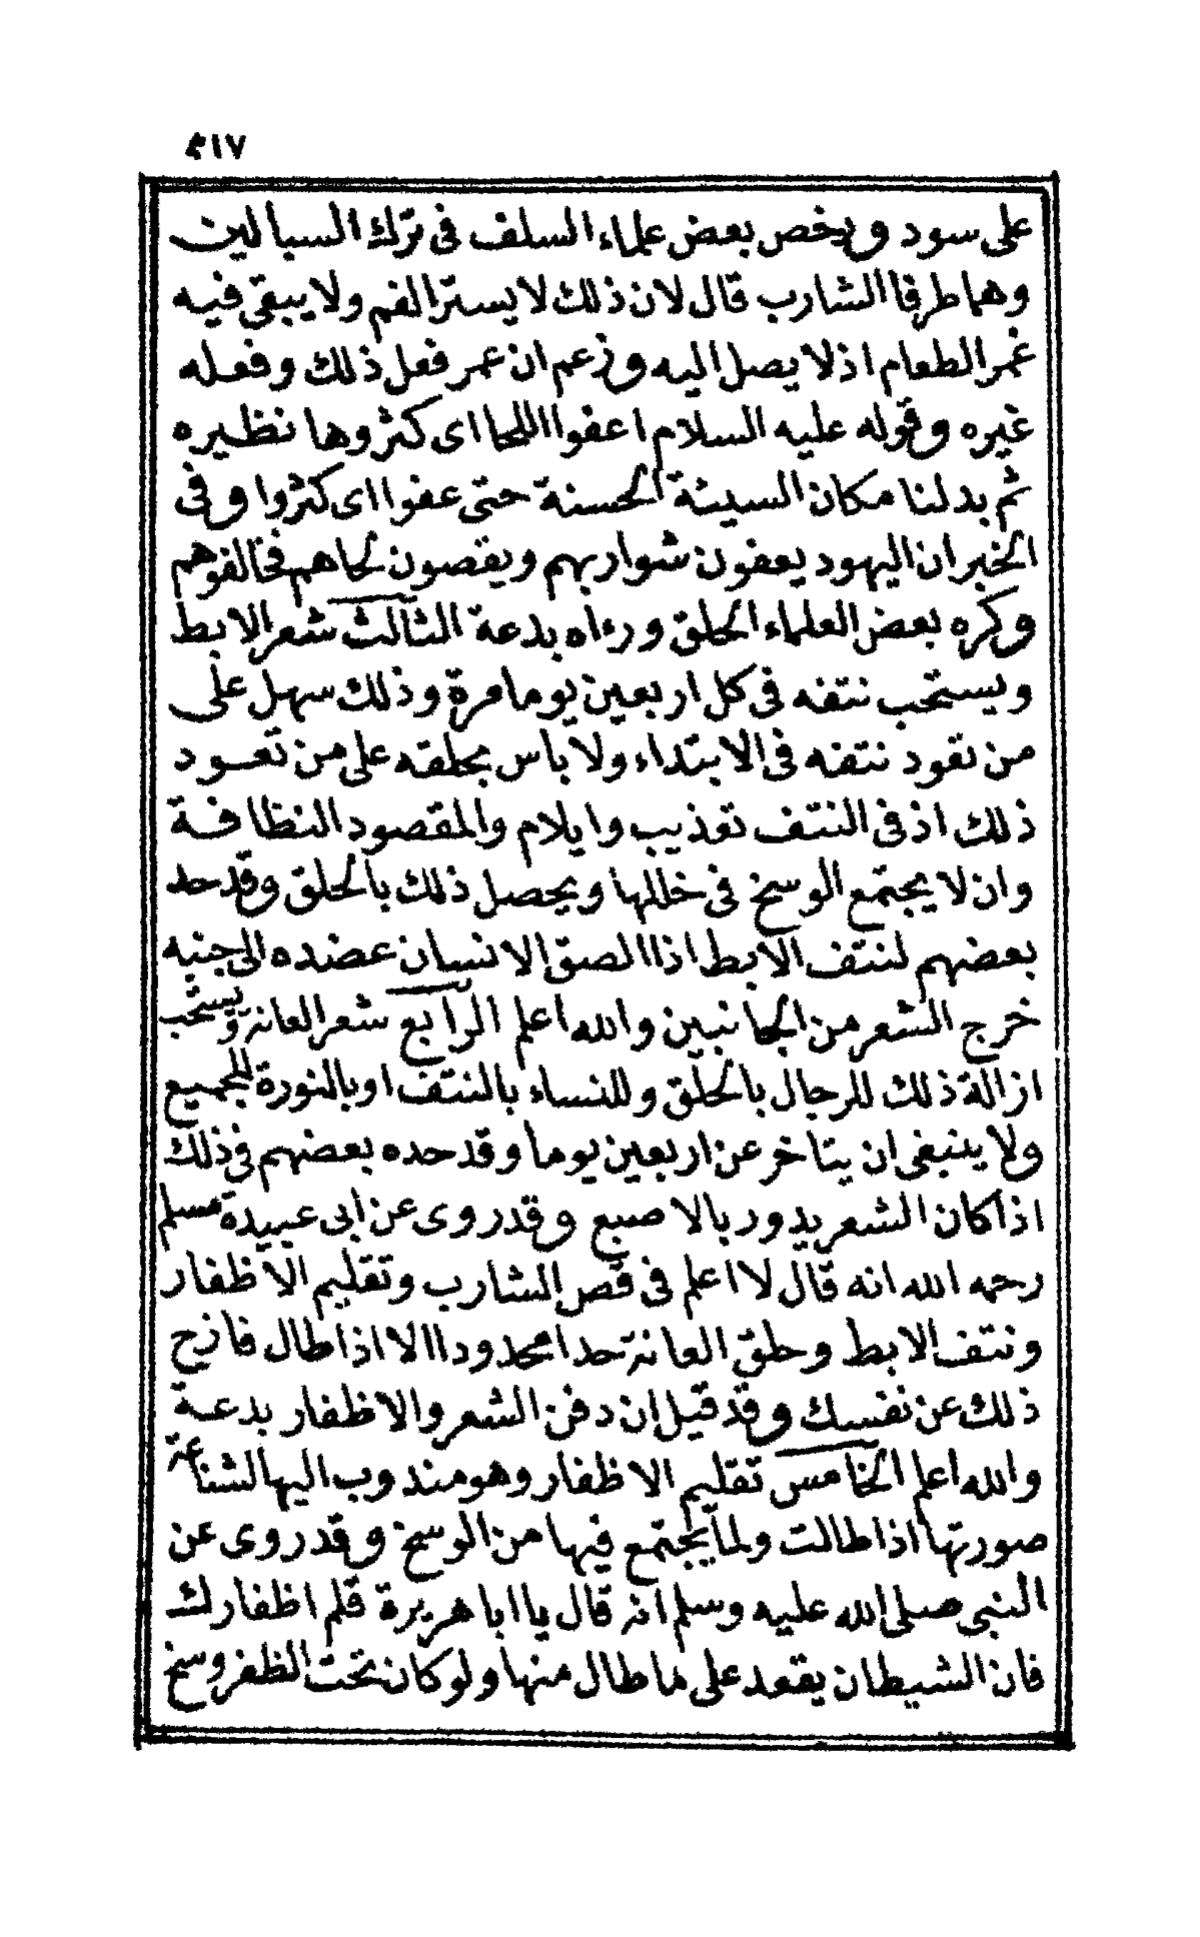 ٣١٧
على سود ورخص بعض علماء السلف فى ترك السبالين
وهما طرفا الشارب قال لان ذلك لا يستر الفم ولا يبقى فيه
غمر الطعام اذ لا يصل اليه وزعم ان عمر فعل ذلك وفعله
غيره وقوله عليه السلام اعفوا اللحا اى كثروها نظيره
ثم بدلنا مكان السيئة الحسنة حتى عفوا اى كثروا وفى
الخبر ان اليهود يعفون شواربهم ويقصون لحاهم فخالفوهم
وكره بعض العلماء الحلق ورءاه بدعة الثالث شعر الابط
ويستحب نتفه فى كل اربعين يوما مرة وذلك سهل على
من تعود نتفه فى الابتداء ولا باس بحلقه على من تعود
ذلك اذ فى النتف تعذيب وايلام والمقصود النظافة
وان لا يجتمع الوسخ فى خللها ويحصل ذلك بالحلق وقد حد
بعضهم لنتف الابط اذا الصق الانسان عضده الى جنبه
خرج الشعر من الجانبين والله اعلم الرابع شعر العانة ويستحب
ازالة ذلك للرجال بالحلق وللنساء بالنتف او بالنورة للجميع
ولا ينبغى ان يتاخر عن اربعين يوما وقد حده بعضهم فى ذلك
اذا كان الشعر يدور بالاصبع وقد روى عن ابى عبيدة مسلم
رحمه الله انه قال لا اعلم فى قص الشارب وتقليم الاظفار
ونتف الابط وحلق العانة حدا محدودا الا اذا طال فازح
ذلك عن نفسك وقد قيل ان دفن الشعر والاظفار بدعة
والله اعلم الخامس تقليم الاظفار وهو مندوب اليها لشناعة
صورتها اذا طالت ولما يجتمع فيها من الوسخ وقد روى عن
النبى صلى الله عليه وسلم انه قال يا ابا هريرة قلم اظفارك
فان الشيطان يقعد على ما طال منها ولو كان تحت الظفر وسخ